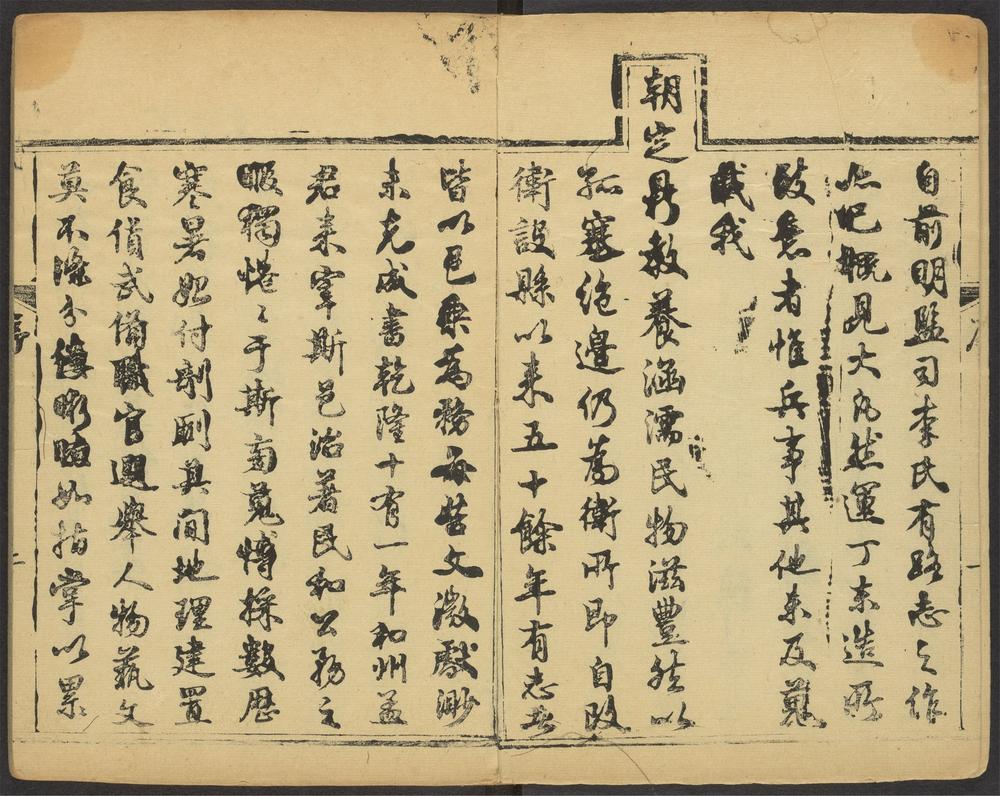 自前明監司李氏有路志之作
此地概見大凡然運丁末造所
致意者惟兵事其他未及蒐
載我
朝定鼎教養涵濡民物滋豐然以
孤塞絶邊仍為衛所即自改
衛設縣以来五十餘年有志者
皆以邑乘為務每苦文微獻渺
未克成書乾隆十有一年和州孟
君来宰斯邑治著民和公務之
暇獨惓〻于斯旁蒐博採數歷
寒暑始付剞劂其間地理建置
食貨武備職官選舉人物藝文
莫不條分縷晰瞭如指掌以累